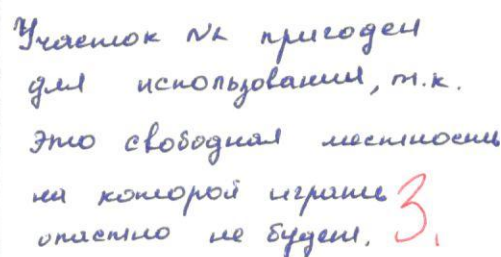 Участок №2 пригоден
для использования, т.к.
это свободная местность
на которой играть 3.
опастно не будет.